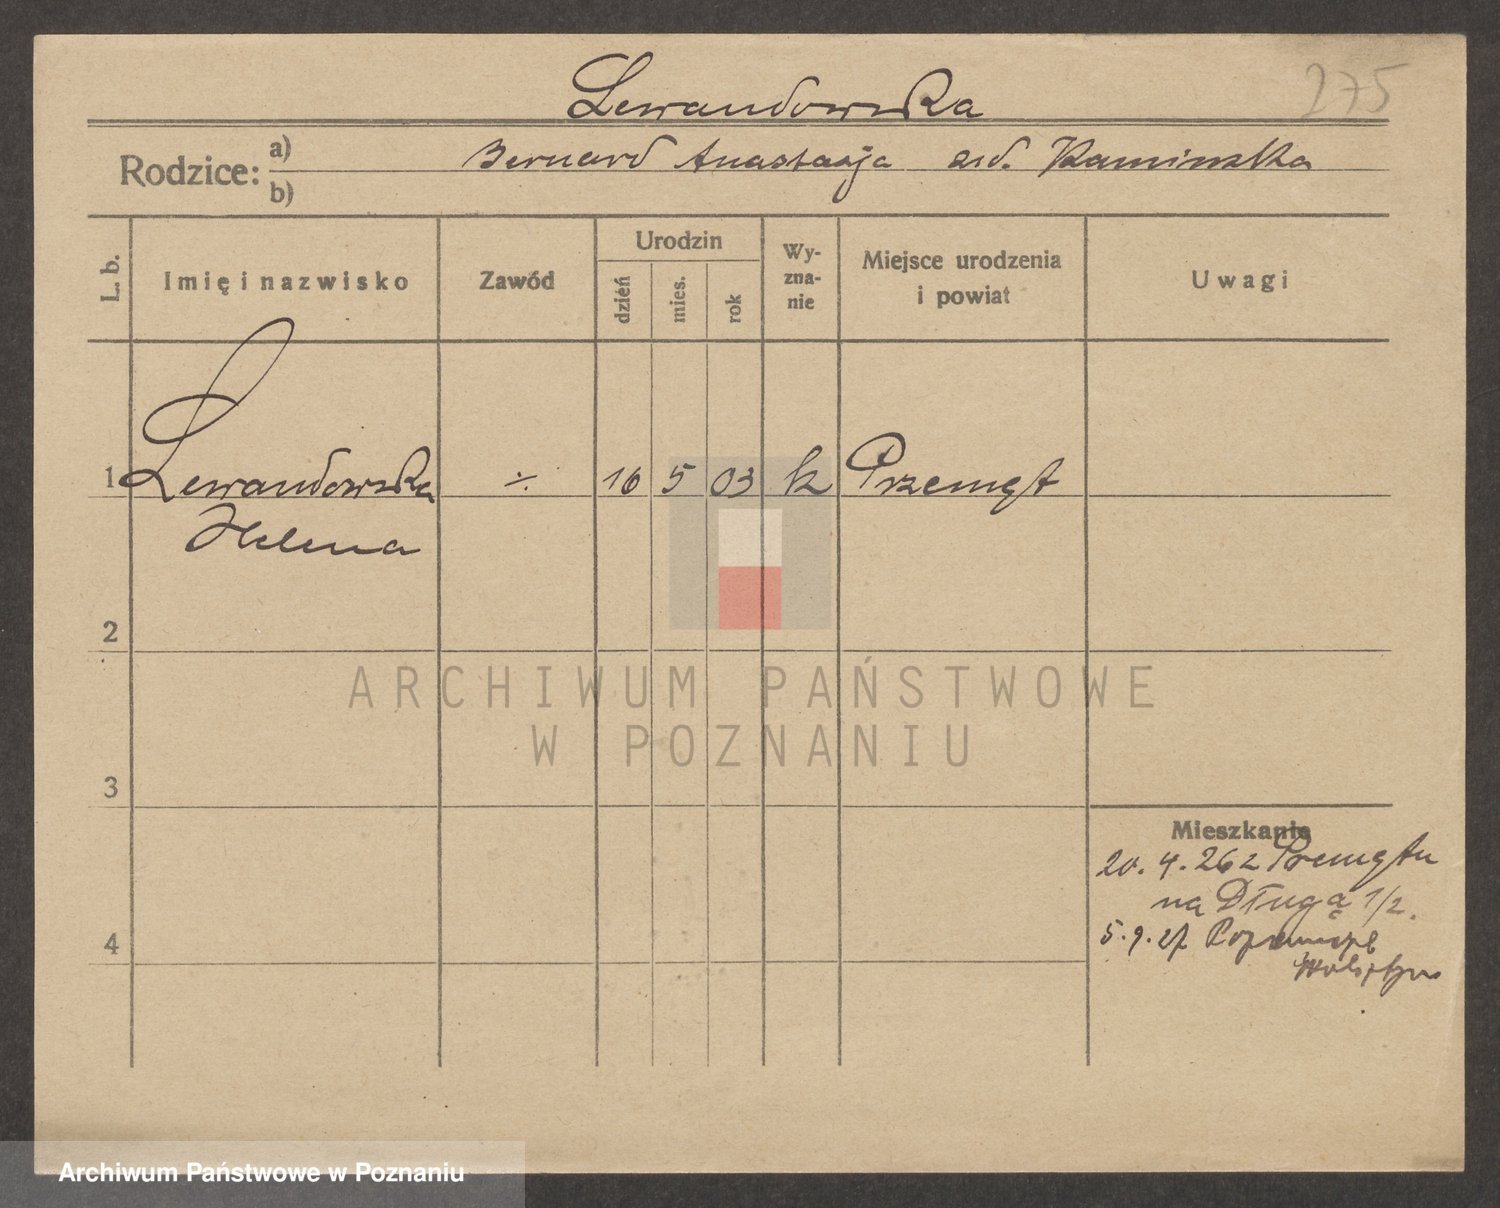 275
Lewandowska
Rodzice: a) Bernard Anastazja zd. Kaminska
b)
L. b. Imię i nazwisko Zawód Urodzin dzień mies. rok Wy-zna-nie Miejsce urodzenia i powiat Uwagi
1 Lewandowska ÷ 16 5 03 k Przemęt
Helena
2
ARCHIWUM PAŃSTWOWE
W POZNANIU
3
Mieszkanie
20. 4. 26 z Premętu
na Długą 1/2.
4
5. 9. 27
Archiwum Państwowe w Poznaniu